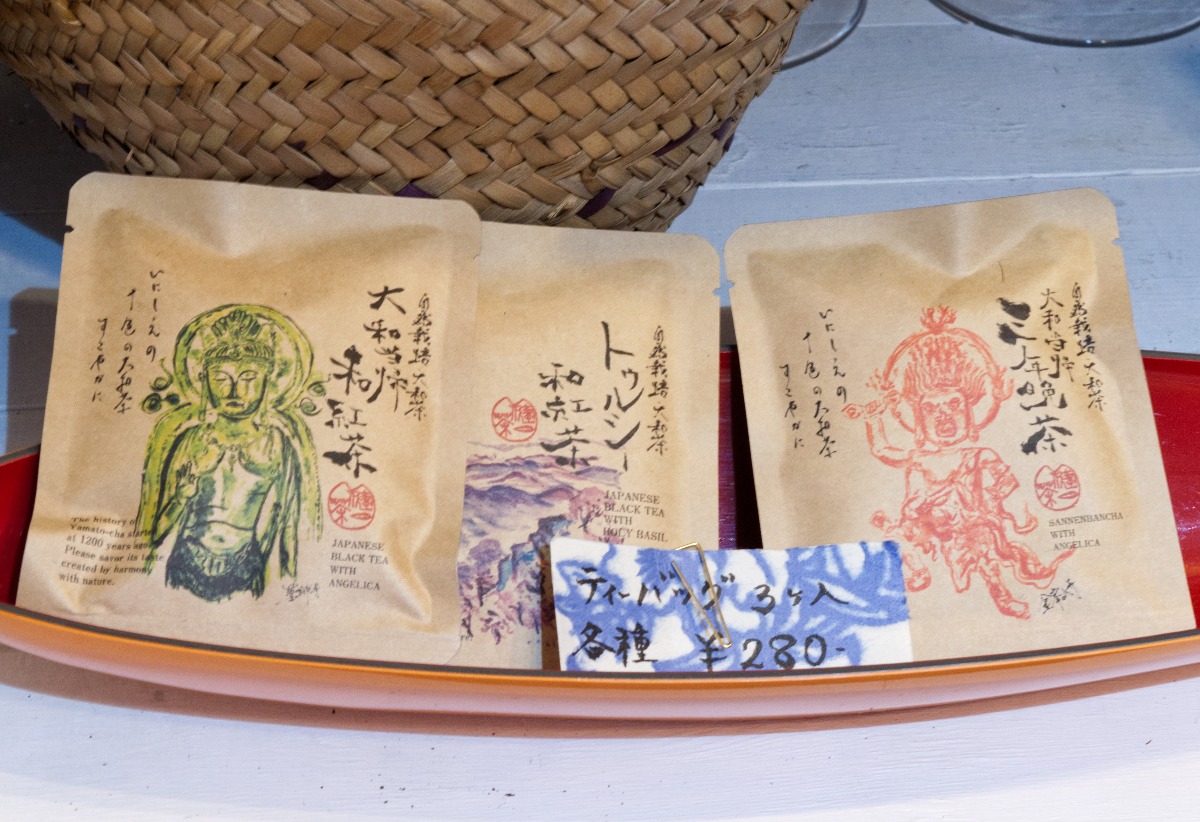 自然栽培 大和茶
大和当帰
和紅茶
いにしえの
十色の大和茶
すこやかに
The history of
Yamato-cha started
at 1200 years ago.
Please savor its taste
created by harmony
with nature.
JAPANESE
BLACK TEA
WITH
ANGELICA
自然栽培 大和茶
トゥルシー
和紅茶
JAPANESE
BLACK TEA
WITH
HOLY BASIL
自然栽培 大和茶
大和当帰
三年晩茶
いにしえの
十色の大和茶
すこやかに
SANNENBANCHA
WITH
ANGELICA
ティーバッグ 3ヶ入
各種 ¥280-